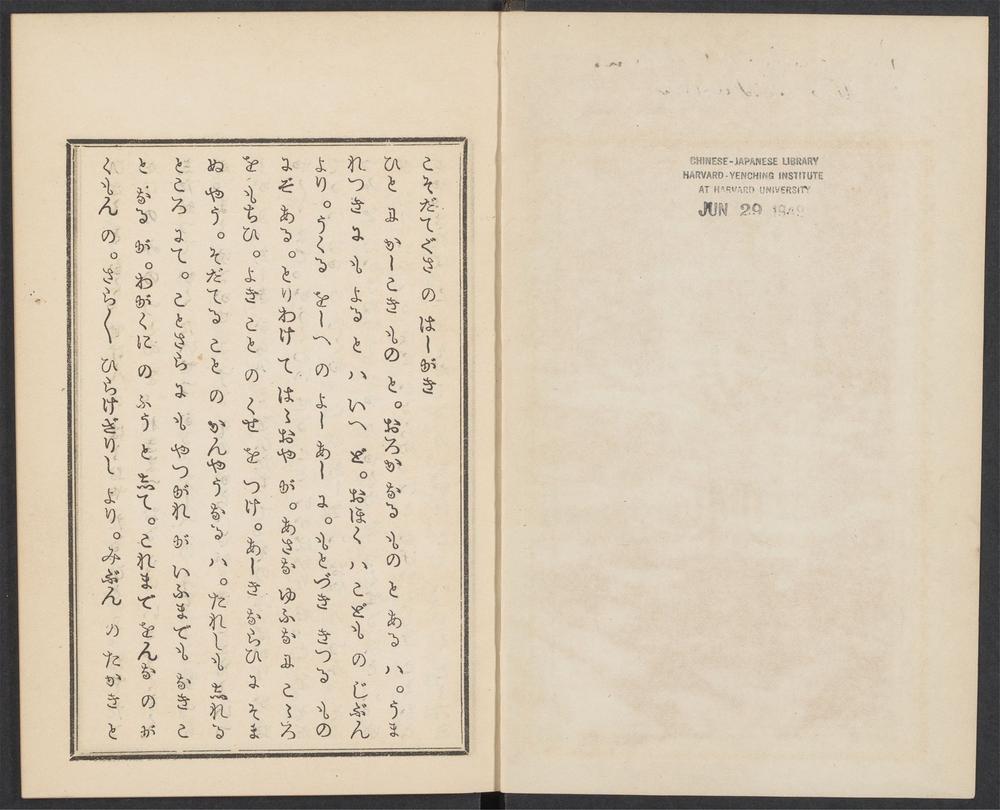 CHINESE-JAPANESE LIBRARY
HARVARD-YENCHING INSTITUTE
AT HARVARD UNIVERSITY
JUN 29
こそだてぐさ の はしがき
ひと に かしこき もの と。おろか なる もの と ある ハ。うま
れつき に も よる と ハ いへ ど。おほく ハ こども の じぶん
より。うくる をしへ の よし あし に。もとづき きつる もの
にぞ ある。とりわけ て はゝおや が。あさな ゆふな に こゝろ
を もちひ。よき こと の くせ を つけ。あしき ならひ に そま
ぬ やう。そだてる こと の かんやう なる ハ。たれしも しれる
ところ にて。ことさら に も やつがれ が いふまでも なき こ
と なる が。わがくに の ふう と して。これまで をんな の が
くもん の。さら〱 ひらけざりし より。みぶん の たかき と